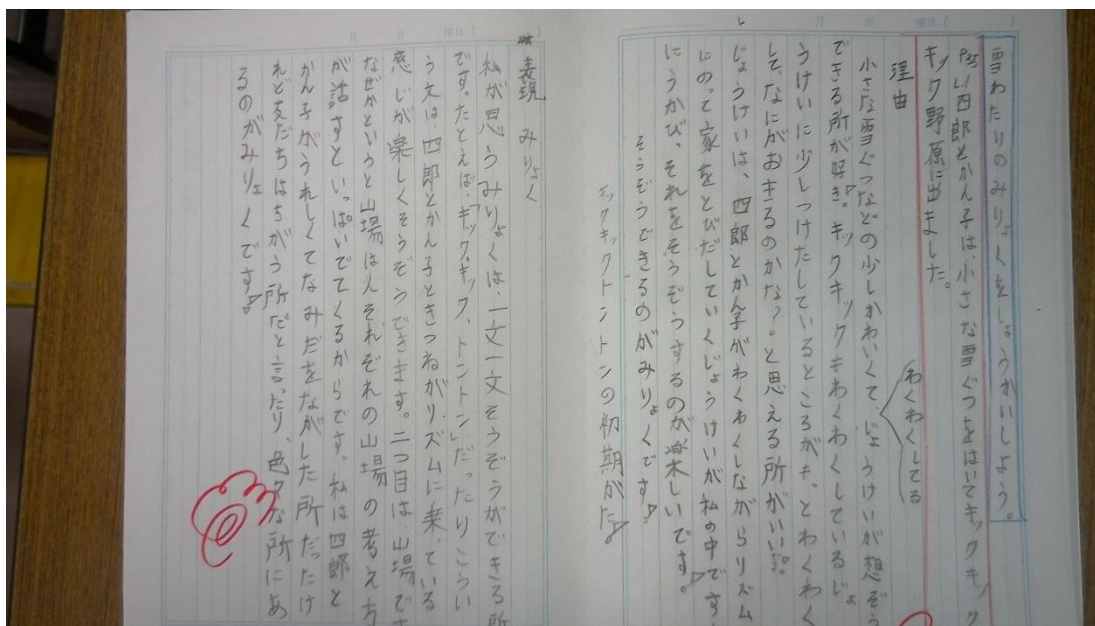 雪わたりのみりょくをしょうかいしよう。
四郎とかん子は、小さな雪ぐつをはいてキックキック
キック野原に出ました。
わくわくしてる
理由
小さな雪ぐつなどの少しかわいくて、じょうけいが想ぞう
できる所が好き。キックキックもわくわくしているじょ
うけいに少しつけたしているところがもっとわくわく
して、なにがおきるのかな?と思える所がいい。
じょうけいは、四郎とかん子がわくわくしながらリズム
にのって家をとびだしていくじょうけいが私の中です
にうかび、それをそうぞうするのが楽しいです。
そうぞうできるのがみりょくです。
キックキックトントンの初期がた
表現 みりょく
私が思うみりょくは、一文一文そうぞうができる所
です。たとえば、「キック、キック、トントン」だったりこうい
う文は、四郎とかん子ときつねがリズムに乗っている
感じが楽しくそうぞうできます。二つ目は山場で
なぜかというと山場は人それぞれの山場の考え方
が話すといっぱいでてくるからです。私は四郎と
かん子がうれしくてなみだをながした所だったけ
れど友だちはちがう所だと言ったり、色々な所にあ
るのがみりょくです。